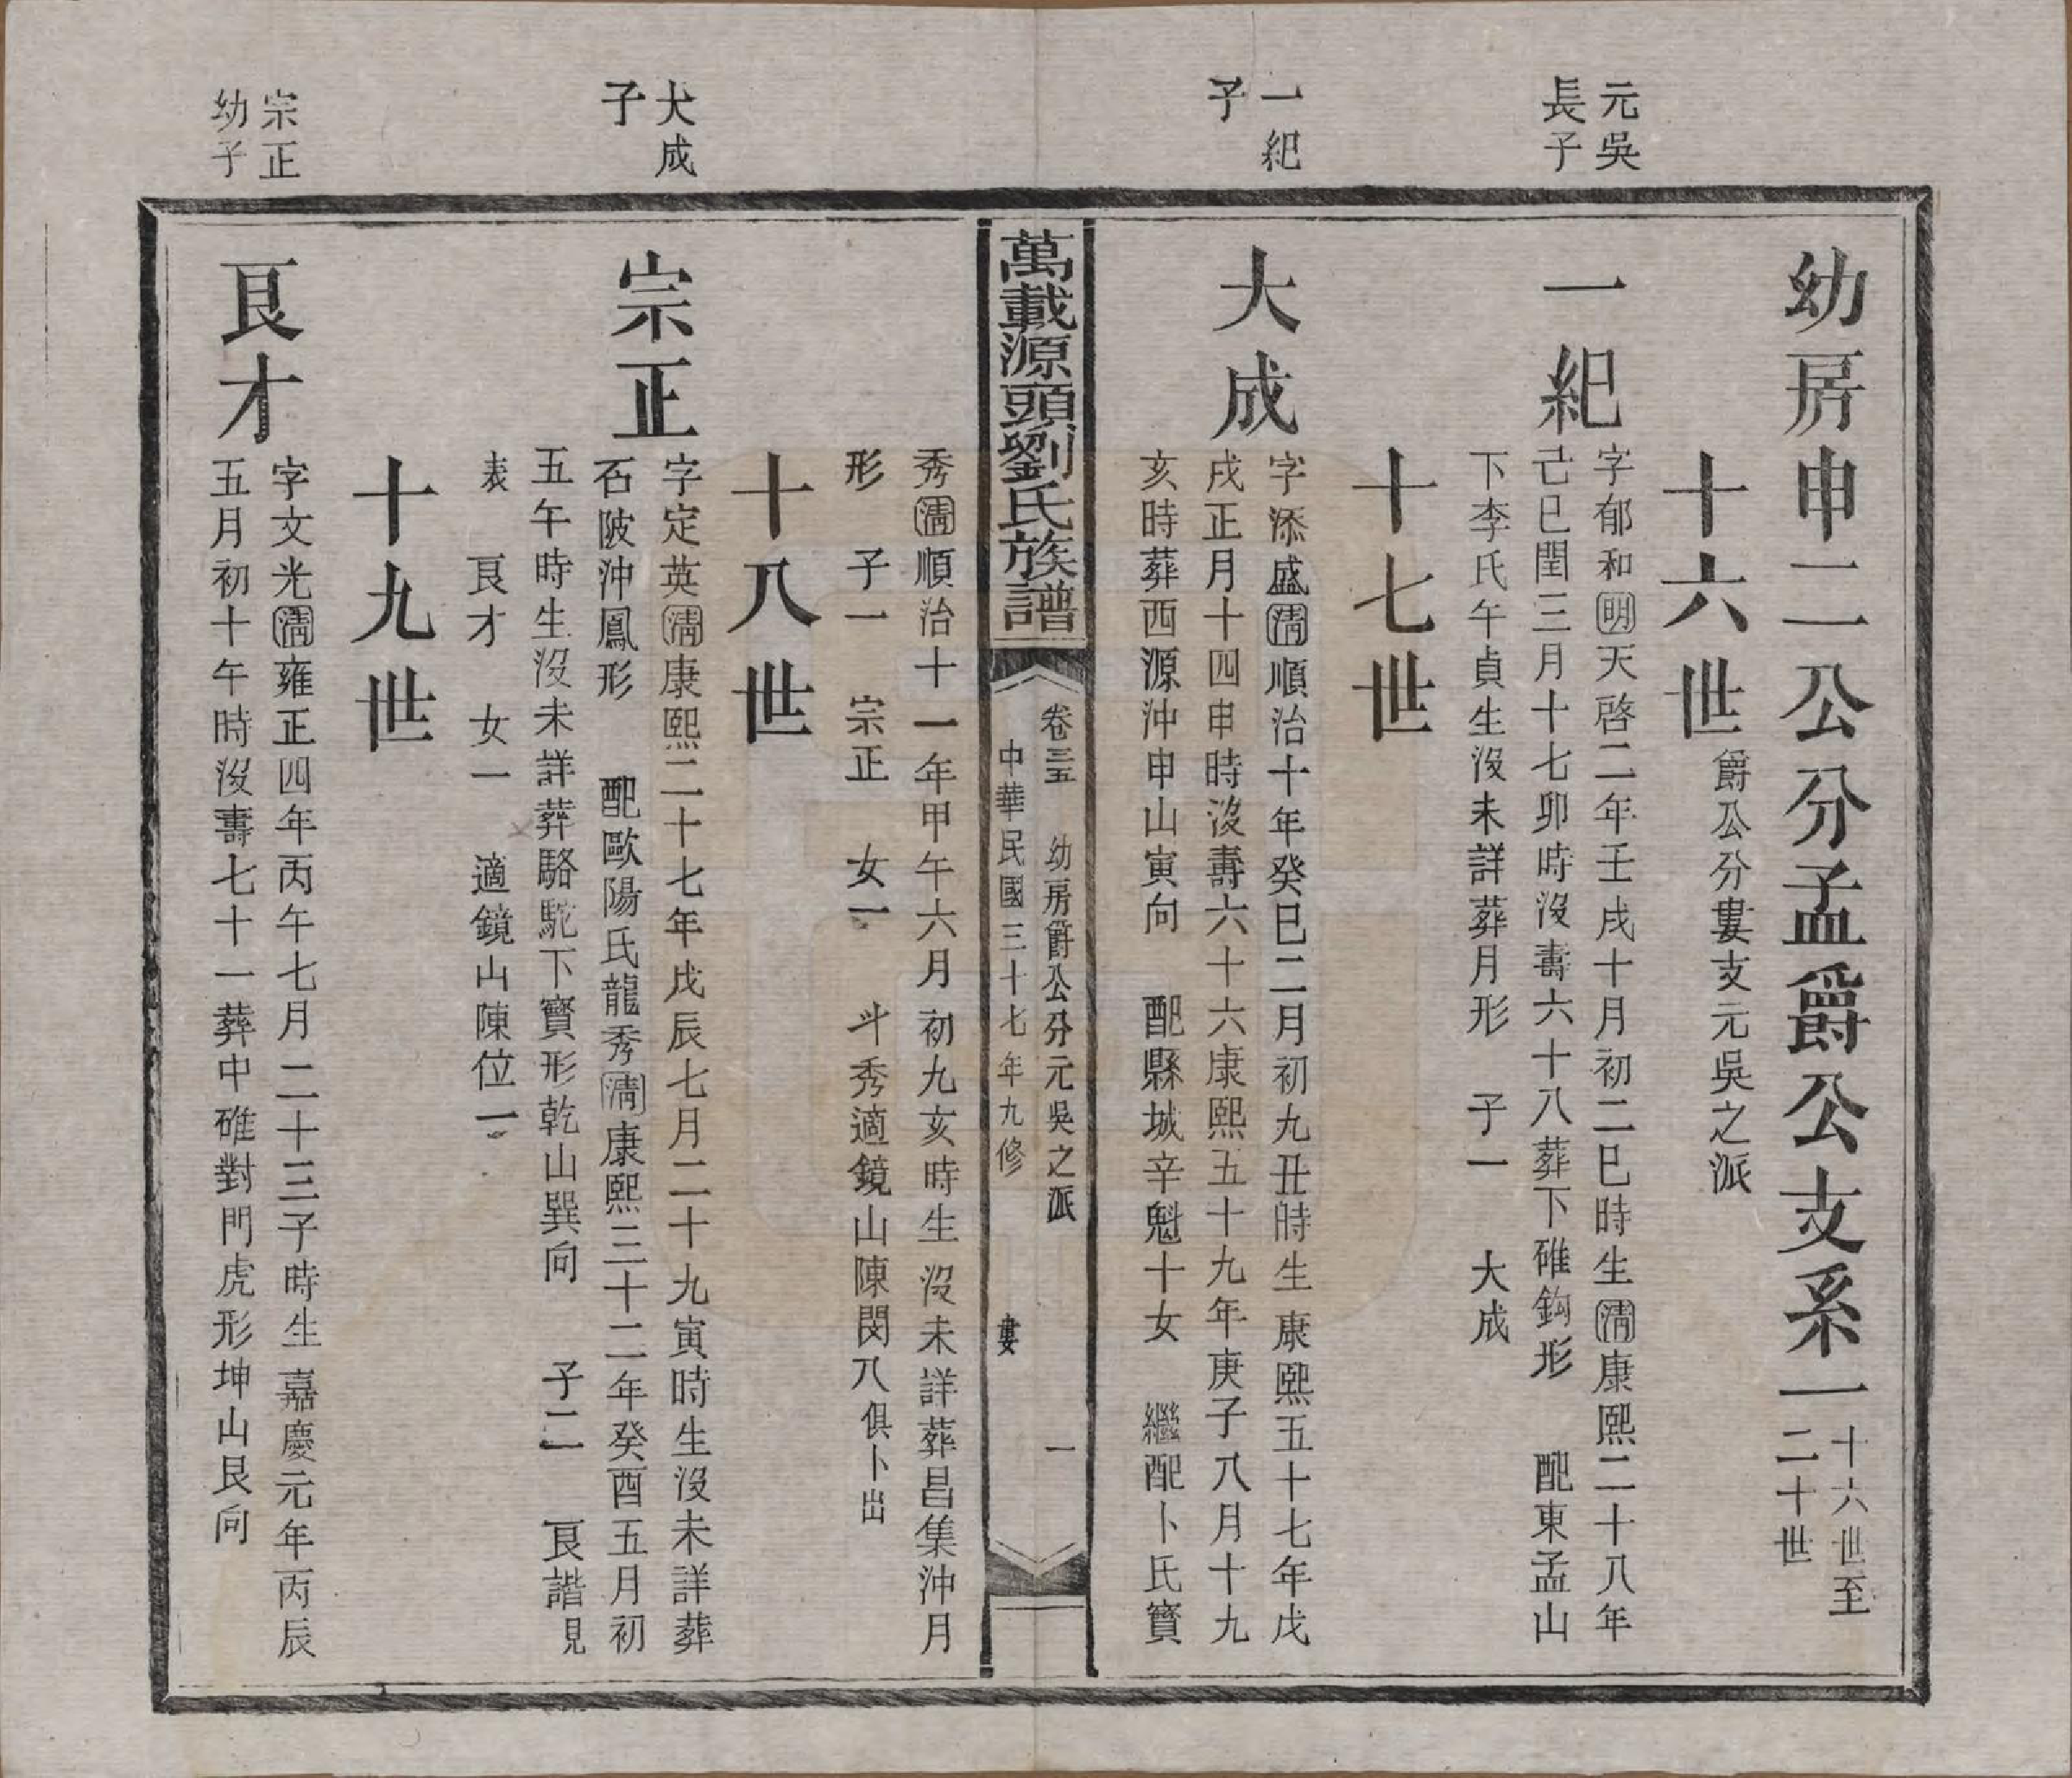 幼房申二公分孟爵公支系一
十六世至
二十世
十六世
爵公分婁支元吳之派
元吳
長子
一紀
字郁和明天啓二年壬戌十月初二巳時生清康熙二十八年
己巳閏三月十七卯時沒壽六十八葬下碓鈎形 配東孟山
下李氏午貞生沒未詳葬月形 子一 大成
十七世
一紀
子
大成
字添盛清順治十年癸巳二月初九丑時生康熙五十七年戊
戌正月十四申時沒壽六十六康熙五十九年庚子八月十九
亥時葬西源沖申山寅向 配縣城辛魁十女 繼配卜氏寶
萬載源頭劉氏族譜
卷三五 幼房爵公分元吳之派 一
中華民國三十七年九修 婁
秀清順治十一年甲午六月初九亥時生沒未詳葬昌集沖月
形 子一 宗正 女一 斗秀適鏡山陳閔八俱卜出
十八世
大成
子
宗正
字定英清康熙二十七年戊辰七月二十九寅時生沒未詳葬
石陂沖鳳形 配歐陽氏龍秀清康熙三十二年癸酉五月初
五午時生沒未詳葬駱駝下寶形乾山巽向 子二 艮諧見
表 艮才 女一 適鏡山陳位一
十九世
宗正
幼子
艮才
字文光清雍正四年丙午七月二十三子時生嘉慶元年丙辰
五月初十午時沒壽七十一葬中碓對門虎形坤山艮向